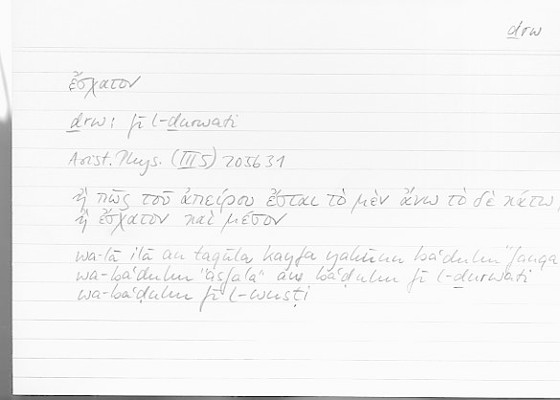 ḏrw
ἔσχατον
ḏrw: fī l-ḏurwati
Arist. Phys. (III 5) 205b31
ἢ πῶς τοῦ ἀπείρου ἔσται τὸ μὲν ἄνω τὸ δὲ κάτω,
ἢ ἔσχατον καὶ μέσον
wa-lā ilā an taqūla kayfa yakūnu baʿḍuhu "fauqa
wa-baʿḍuhu "asfala" au baʿḍuhu fī l-ḏurwati
wa-baʿḍuhu fī l-wusṭi